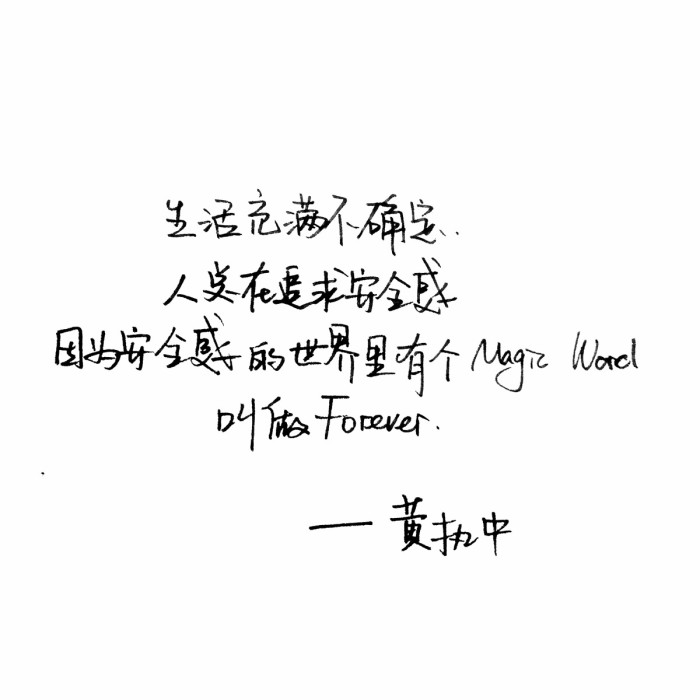 生活充满不确定..
人类在追求安全感
因为安全感的世界里有个 Magic Word
叫做 Forever.
—— 黄执中